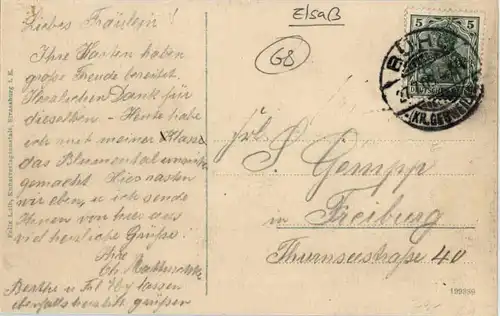 Elsaß
68
Liebes Fräulein!
Ihre Karten haben
große Freude bereitet.
Herzlichen Dank für
dieselben - Heute habe
ich mit meiner
das Blumental unsicher
gemacht. Hier rasten
wir eben, u ich sende
Ihnen von hier aus
viel herzliche Grüße!
Ihre
Berthe u Frl lassen
ebenfalls herzlich grüßen
Frls.
S. Gempp
in Freiburg
Thurnseestraße 40
5 5
BÜHL
(KR. GEBWEILER)
Felix Luib, Kunstverlagsanstalt, Strassburg i. E.